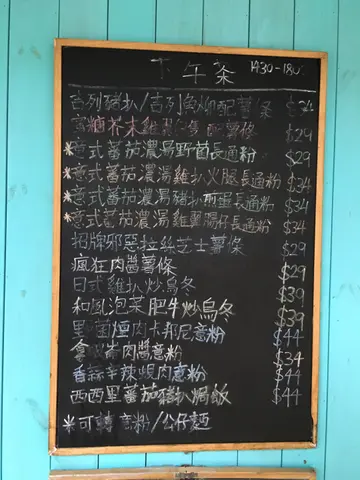 下午茶 1430-1800
吉列豬扒/吉列魚柳配薯條 $34
蜜糖芥末雞翼 配薯條 $29
*意式蕃茄濃湯野菌長通粉 $29
*意式蕃茄濃湯雞扒火腿長通粉 $34
*意式蕃茄濃湯豬扒煎蛋長通粉 $34
*意式蕃茄濃湯雞翼腸仔長通粉 $34
招牌邪惡拉絲芝士薯條 $29
瘋狂肉醬薯條 $29
日式雞扒炒烏冬 $39
和風泡菜肥牛炒烏冬 $39
野菌煙肉卡邦尼意粉 $44
拿破崙肉醬意粉 $34
香蒜辛辣蜆肉意粉 $44
西西里蕃茄豬扒焗飯 $44
*可轉意粉/公仔麵